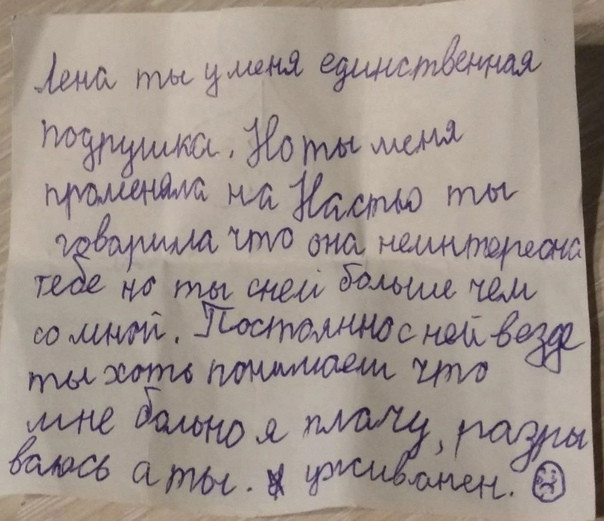 Лена ты у меня единственная
подрушка. Но ты меня
променяла на Настью ты
говарила что она неинтересна
тебе но ты сней больше чем
со мной. Постоянно с ней везде
ты хоть понимаеш что
мне больно я плачу, разры
ваюсь а ты.